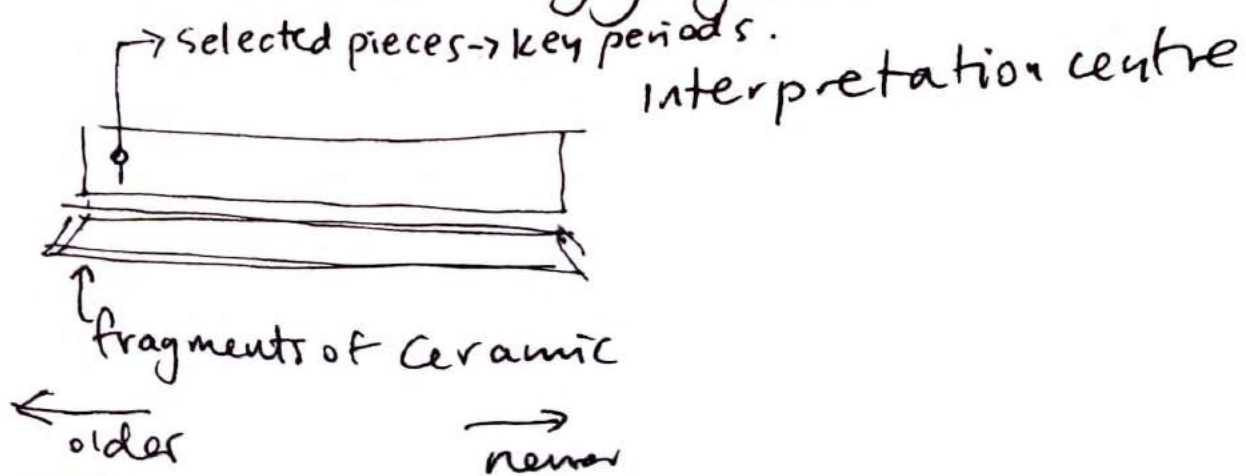 selected pieces → key periods.
Interpretation centre
fragments of Ceramic
older
newer